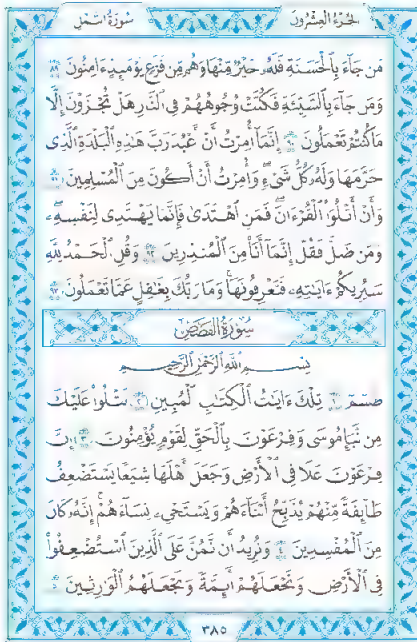 الجزء العشرون سورة النمل
مَن جَآءَ بِٱلْحَسَنَةِ فَلَهُۥ خَيْرٌ مِّنْهَا وَهُم مِّن فَزَعٍ يَوْمَئِذٍ ءَامِنُونَ ٨٩
وَمَن جَآءَ بِٱلسَّيِّئَةِ فَكُبَّتْ وُجُوهُهُمْ فِى ٱلنَّارِ هَلْ تُجْزَوْنَ إِلَّا
مَا كُنتُمْ تَعْمَلُونَ ٩٠ إِنَّمَآ أُمِرْتُ أَنْ أَعْبُدَ رَبَّ هَٰذِهِ ٱلْبَلْدَةِ ٱلَّذِى
حَرَّمَهَا وَلَهُۥ كُلُّ شَىْءٍ وَأُمِرْتُ أَنْ أَكُونَ مِنَ ٱلْمُسْلِمِينَ ٩١
وَأَنْ أَتْلُوَا۟ ٱلْقُرْءَانَ فَمَنِ ٱهْتَدَىٰ فَإِنَّمَا يَهْتَدِى لِنَفْسِهِۦ
وَمَن ضَلَّ فَقُلْ إِنَّمَآ أَنَا۠ مِنَ ٱلْمُنذِرِينَ ٩٢ وَقُلِ ٱلْحَمْدُ لِلَّهِ
سَيُرِيكُمْ ءَايَٰتِهِۦ فَتَعْرِفُونَهَا وَمَا رَبُّكَ بِغَٰفِلٍ عَمَّا تَعْمَلُونَ ٩٣
سورة القصص
بِسْمِ ٱللَّهِ ٱلرَّحْمَٰنِ ٱلرَّحِيمِ
طسٓمٓ ١ تِلْكَ ءَايَٰتُ ٱلْكِتَٰبِ ٱلْمُبِينِ ٢ نَتْلُوا۟ عَلَيْكَ
مِن نَّبَإِ مُوسَىٰ وَفِرْعَوْنَ بِٱلْحَقِّ لِقَوْمٍ يُؤْمِنُونَ ٣ إِنَّ
فِرْعَوْنَ عَلَا فِى ٱلْأَرْضِ وَجَعَلَ أَهْلَهَا شِيَعًا يَسْتَضْعِفُ
طَآئِفَةً مِّنْهُمْ يُذَبِّحُ أَبْنَآءَهُمْ وَيَسْتَحْىِۦ نِسَآءَهُمْ إِنَّهُۥ كَانَ
مِنَ ٱلْمُفْسِدِينَ ٤ وَنُرِيدُ أَن نَّمُنَّ عَلَى ٱلَّذِينَ ٱسْتُضْعِفُوا۟
فِى ٱلْأَرْضِ وَنَجْعَلَهُمْ أَئِمَّةً وَنَجْعَلَهُمُ ٱلْوَٰرِثِينَ ٥
٣٨٥